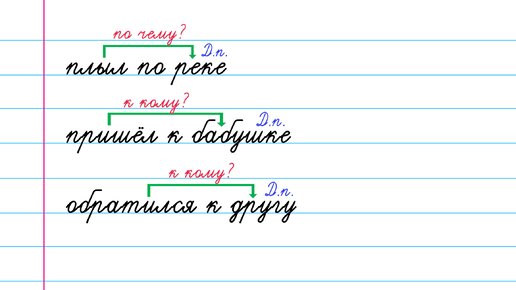 по чему?
Д.п.
плыл по реке
к кому?
Д.п.
пришёл к бабушке
к кому?
Д.п.
обратился к другу